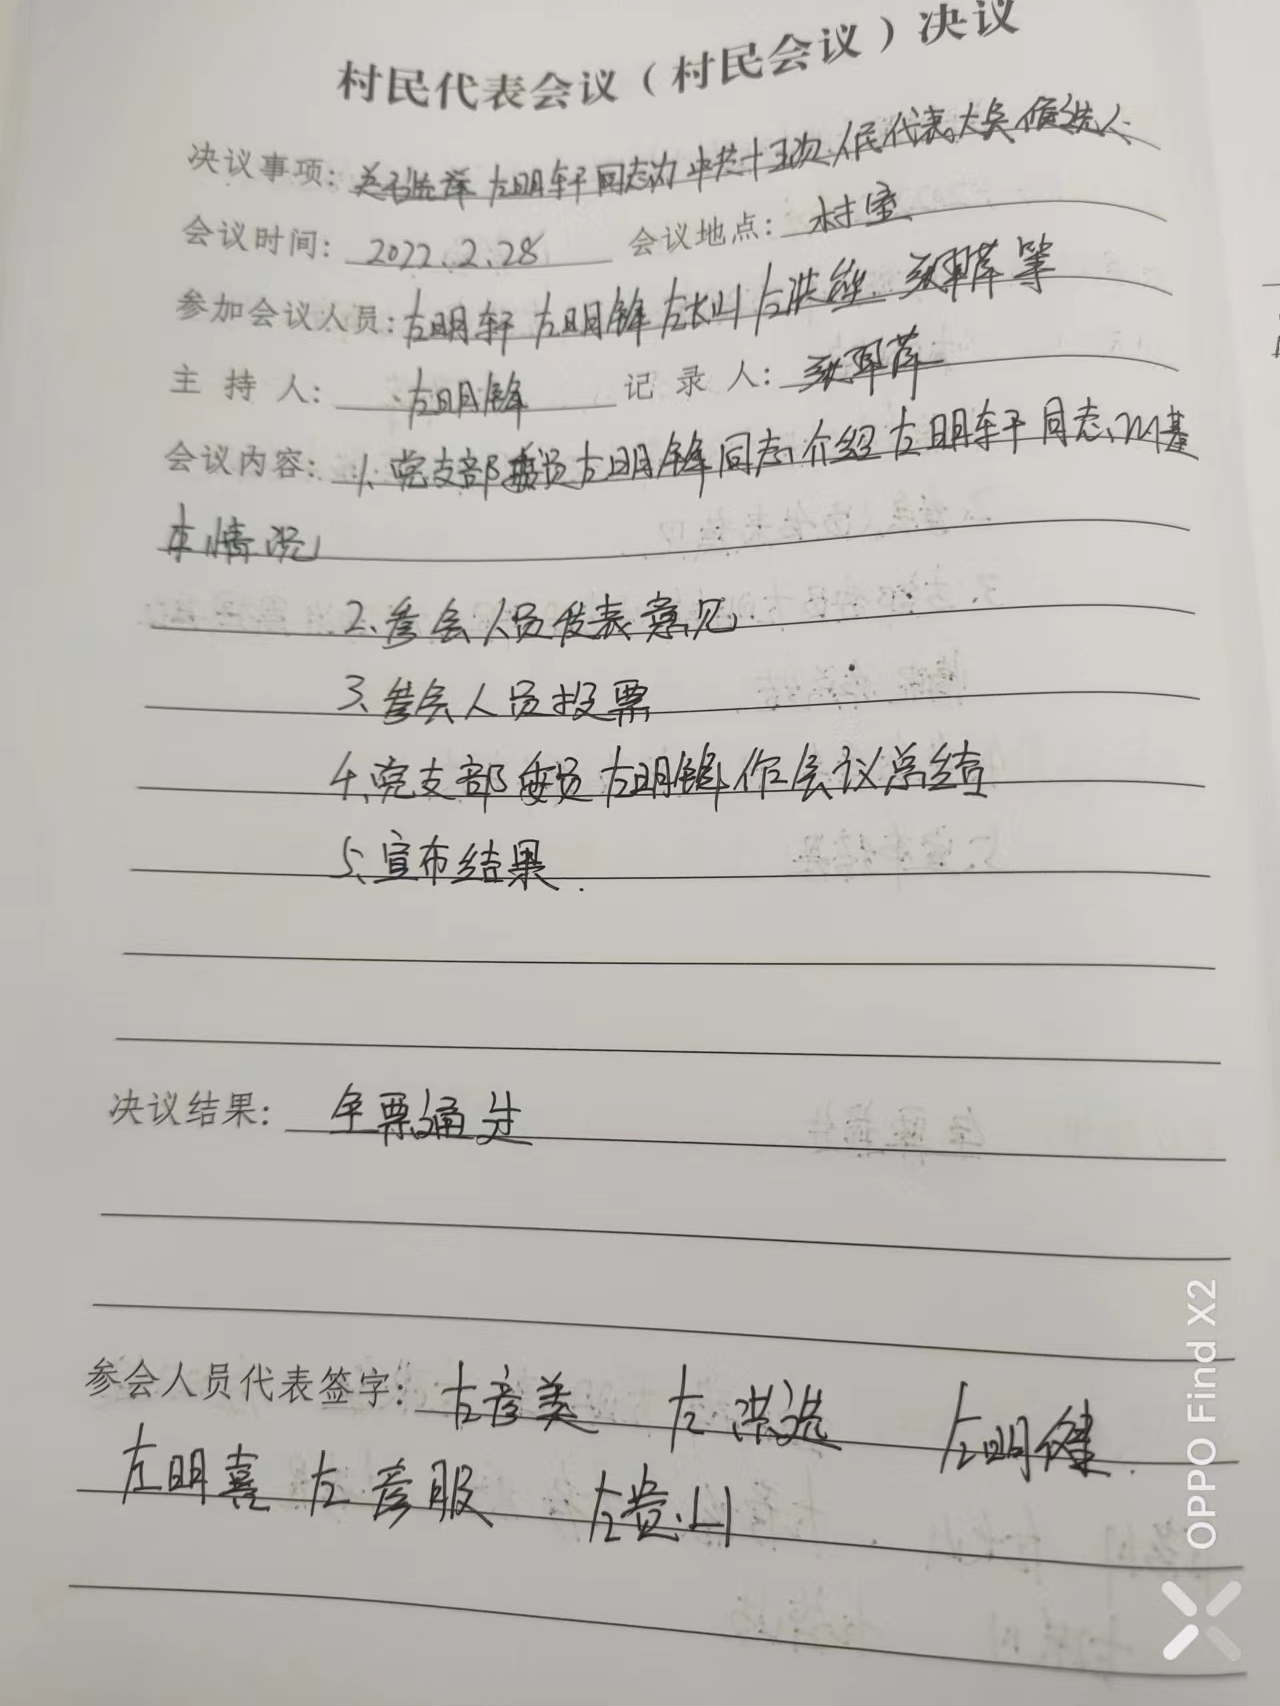 村民代表会议（村民会议）决议
决议事项：关于选择左明轩同志为中共十五次人民代表大会候选人
会议时间：2022.2.28 会议地点：村室
参加会议人员：左明轩 左明锋 左长山 左洪 等
主持人：左明锋 记录人：
会议内容：1、党支部委员左明锋同志介绍左明轩同志、的基
本情况
2、参会人员发表意见
3、参会人员投票
4、党支部委员左明锋作会议总结
5、宣布结果.
决议结果：全票通过
参会人员代表签字：左彦美 左洪选 左明健.
左明喜 左彦服 左贵山
OPPO Find X2